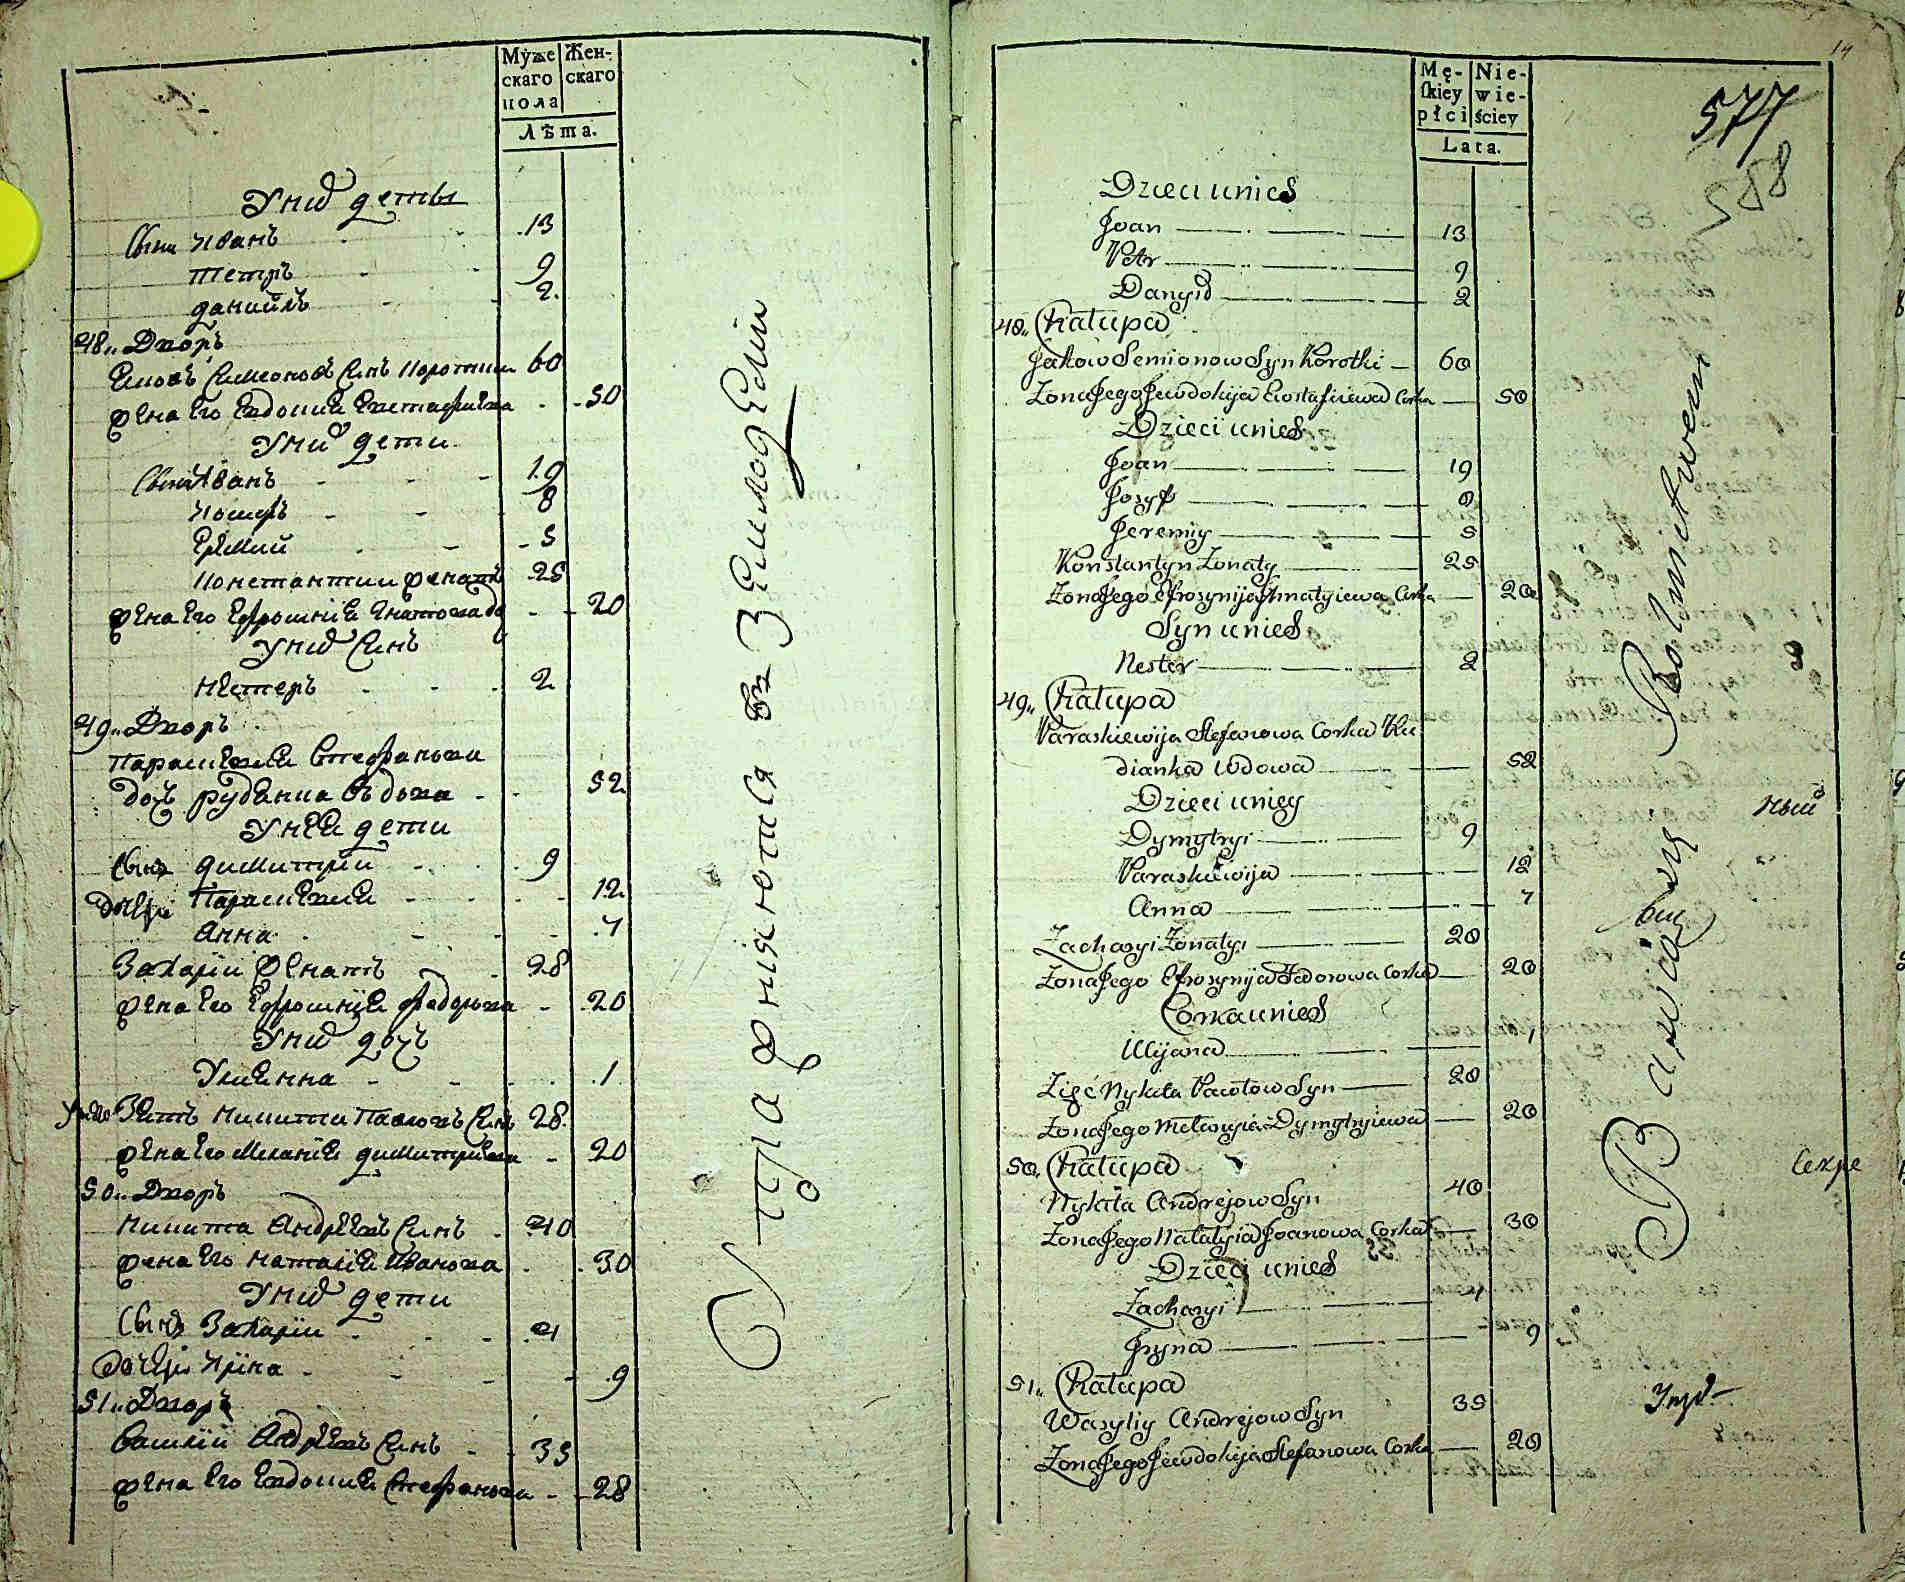 Муже Жен-
скаго скаго
пола
Лѣта.
Унѝ деты
Сыны Иванъ 13
Петръ 9
Данийлъ 2
48,, Дворъ
Симеоновъ Синъ 60
жена Его Евдокиѣ Евстафиева 50
Унѝ дети
Сыны Иванъ 19
Иосифъ 8
Еремий 5
Константин женатъ 25
жена Его Ефросиніѣ 20
Унѝ Синъ
Нестеръ 2
49,, Дворъ
Параскевиѣ Стефанова
дочъ вдова 52
Унеи дети
Сынъ димитрій 9
дочери Параскевиѣ 12
Анна 7
Захарій женатъ 28
жена Его Ефросиніѣ Федорова 20
Унѝ дочъ
Улиѣнна 1
Зять Никита Павловъ Синъ 28
жена Его Меланиѣ димитриева 20
50,, Дворъ
Никита Андреевъ Синъ 40
жена Его Наталиѣ Иванова 30
Унѝ дети
Сынъ Захарій 4
Дочери Ирина 9
51,, Дворъ
Василій Андреевъ Синъ 35
жена Его Евдокиѣ Стефанова 28
14
577
588
Mę- Nie-
skiey wie-
płci ściey
Lata.
Dzieci unieÿ
Joan 13
Petr 9
Danyid 2
48,, Chałupa
Jakow Semionow Syn Korotki 60
Zona Jego Jewdokija Eustafiewa Corka 50
Dzieci unieÿ
Joan 19
Josyf 8
Jeremiy 5
Konstantyn Zonaty 25
Zona Jego Efrosynija Jhnatyiewa Corka 20
Syn unieÿ
Nester 2
49,, Chałupa
Paraskiewija Stefanowa Corka Ru
dianka Wdowa 52
Dzieci uniey
Dymytryi 9
Paraskiewija 12
Anna 7
Zacharyi Zonatyi 28
Zona Jego Efrosynija Fedorowa Corka 20
Corka unieÿ
Ulijana 1
Zięć Nykita Pawłow Syn 28
Zona Jego Mełanyia Dymytryiewa 20
50,, Chałupa
Nykita Andrejow Syn 40
Zona Jego Natalyia Joanowa Corka 30
Dzieci unieÿ
Zacharyi 4
Jryna 9
51,, Chałupa
Wasyliy Andrejow Syn 35
Zona Jego Jewdokija Stefanowa Corka 28
ный
Секре